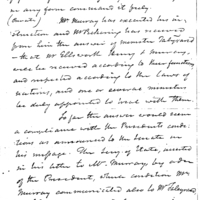 or any form command it freely
(Private) Mr. Murray has executed his in-
struction and Mr Pickering has received
from him the answer of minister Talleyrand
that Mr Ellsworth Henry & Murray
will be received according to their functions
and respected according to the Laws of
nations, and one or several ministers
be duly appointed to treat with them.
So far the answer would seem
a compliance with the Presidents cond-
itions as announced to the Senate in
his message. The Secy. of State, united
in his letter to Mr. Murray, by order
of the President, which condition Mr
Murray communicated also to Mr Talleyrand